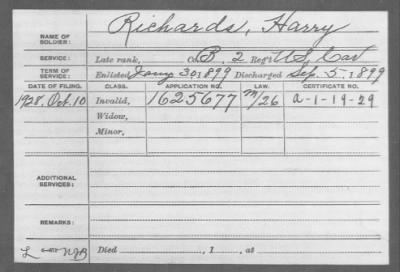 NAME OF SOLDIER: Richards, Harry
SERVICE: Late rank, Co. B. 2 Reg't U.S. Cav
TERM OF SERVICE: Enlisted Jany 30 1899 Discharged Sep. 5. 1899
DATE OF FILING. CLASS. APPLICATION NO. LAW. CERTIFICATE NO.
1928. Oct. 10 Invalid, 1625677 M/26 a-1-19-29
Widow,
Minor,
ADDITIONAL SERVICES:
REMARKS:
Died , 1 , at